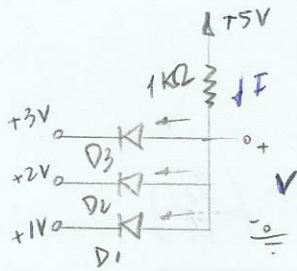 +5V
1KΩ
I
+3V
+
D3
+2V
D2
V
+1V
-
D1